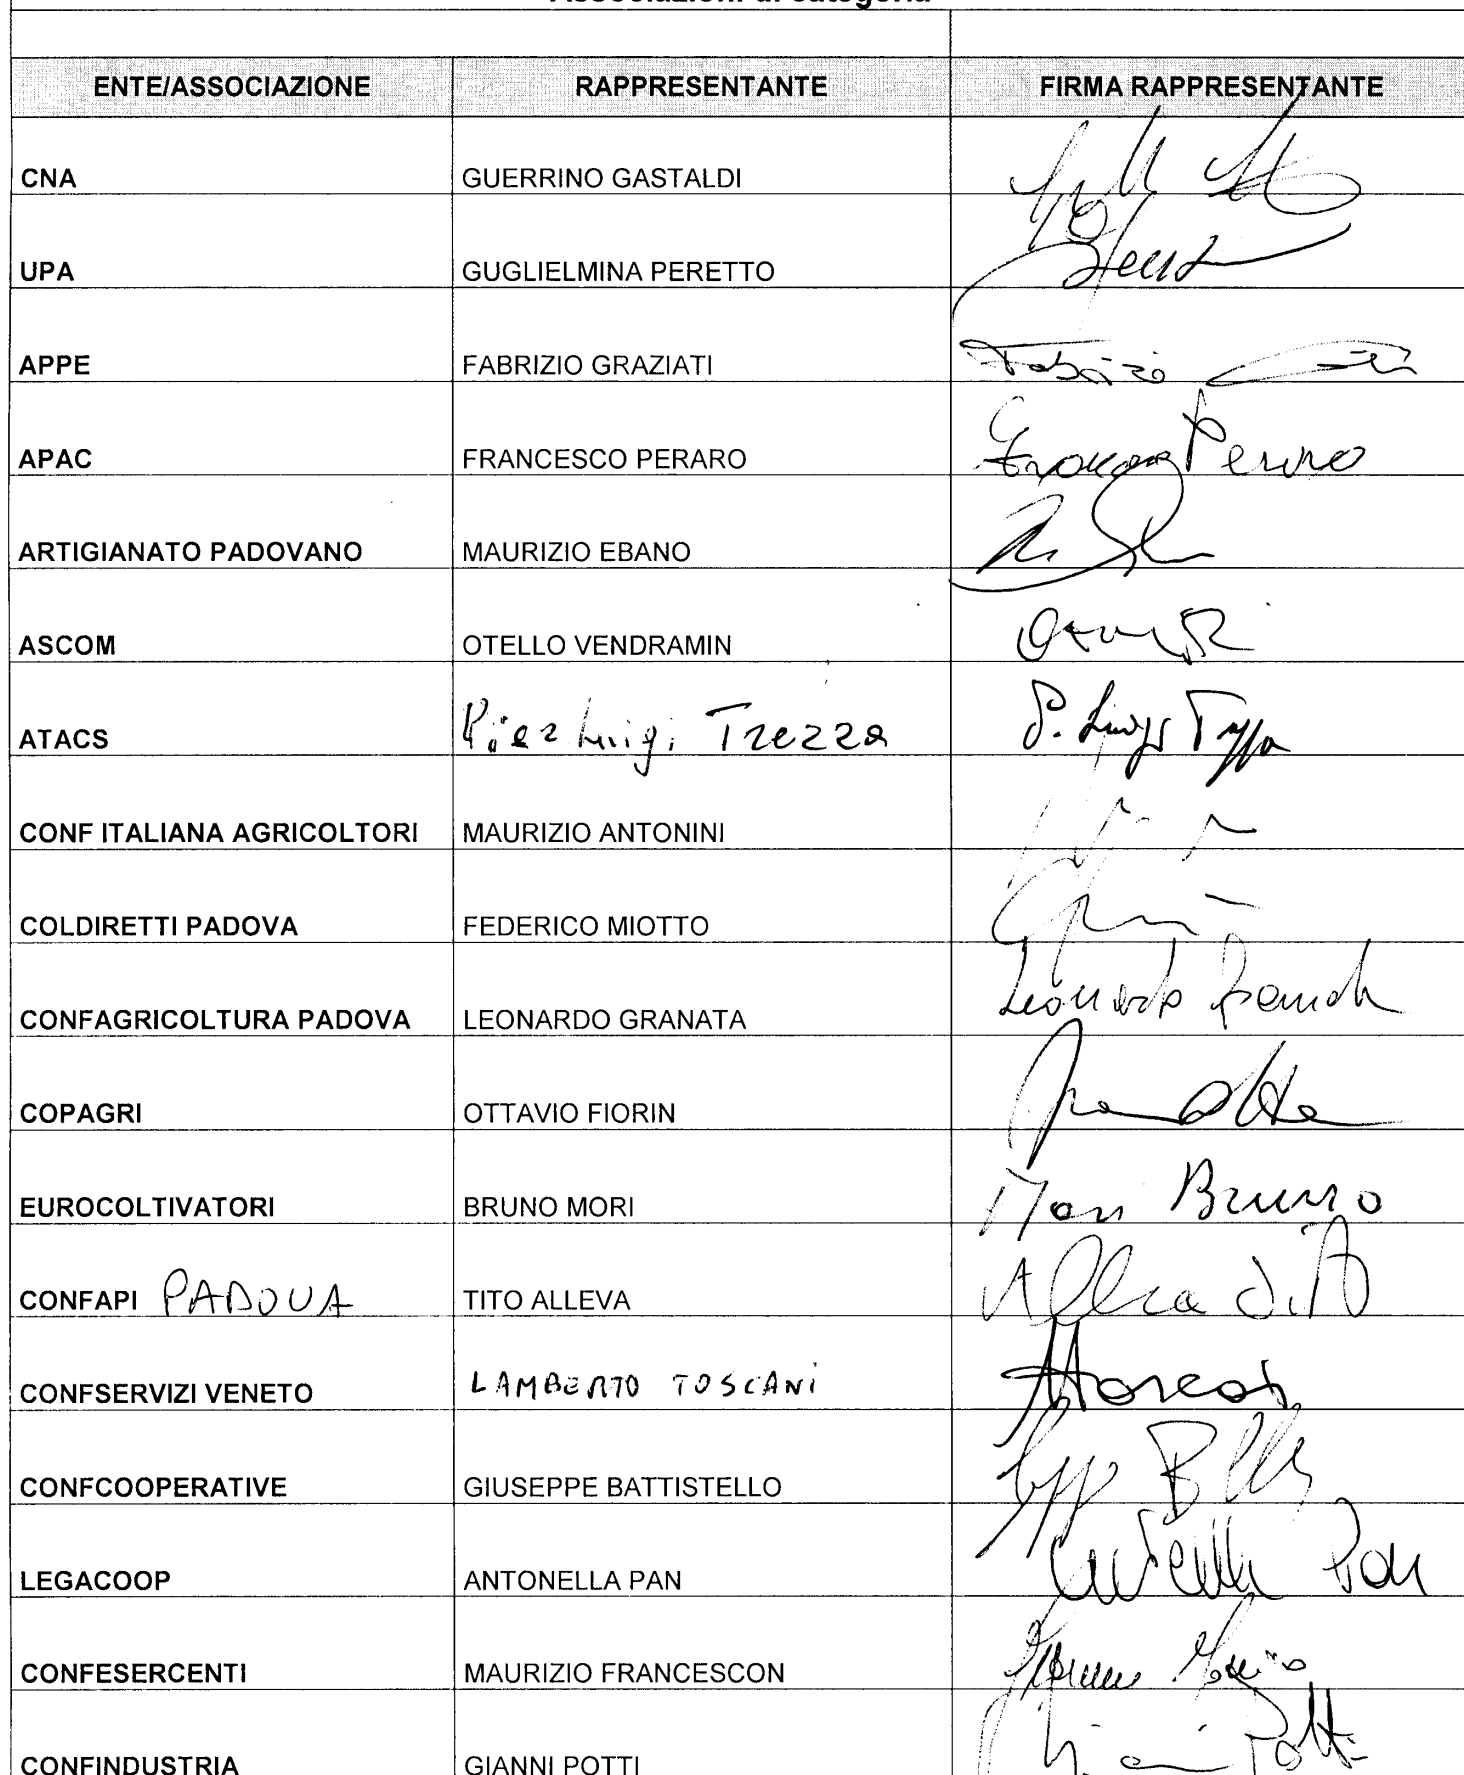 Associazioni di categoria
ENTE/ASSOCIAZIONE RAPPRESENTANTE FIRMA RAPPRESENTANTE
CNA GUERRINO GASTALDI
UPA GUGLIELMINA PERETTO
APPE FABRIZIO GRAZIATI Fabrizio
APAC FRANCESCO PERARO Francesco Peraro
ARTIGIANATO PADOVANO MAURIZIO EBANO
ASCOM OTELLO VENDRAMIN
ATACS Pier Luigi Trezza P. Luigi Trezza
CONF ITALIANA AGRICOLTORI MAURIZIO ANTONINI
COLDIRETTI PADOVA FEDERICO MIOTTO
CONFAGRICOLTURA PADOVA LEONARDO GRANATA Leonardo Granata
COPAGRI OTTAVIO FIORIN
EUROCOLTIVATORI BRUNO MORI Mori Bruno
CONFAPI PADOVA TITO ALLEVA Alleva Tito
CONFSERVIZI VENETO LAMBERTO TOSCANI
CONFCOOPERATIVE GIUSEPPE BATTISTELLO
LEGACOOP ANTONELLA PAN Antonella Pan
CONFESERCENTI MAURIZIO FRANCESCON
CONFINDUSTRIA GIANNI POTTI Gianni Potti